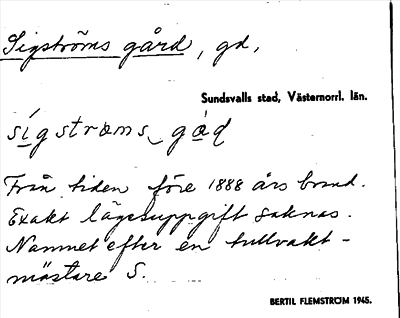 Sigströms gård, gd,
Sundsvalls stad, Västernorrl. län.
sígstrøms gɷ́ɖ
Från tiden före 1888 års brand.
Exakt lägesuppgift saknas.
Namnet efter en tullvakt-
mästare S.
BERTIL FLEMSTRÖM 1945.